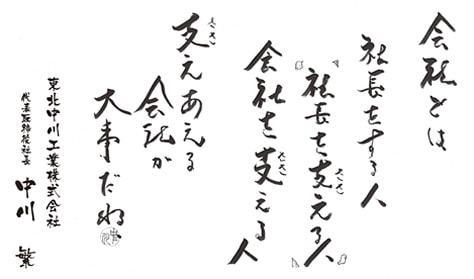 会社とは
社長をする人
社長を支える人
会社を支える人
支えあえる
会社が
大事だね
東北中川工業株式会社
代表取締役社長 中川 繁